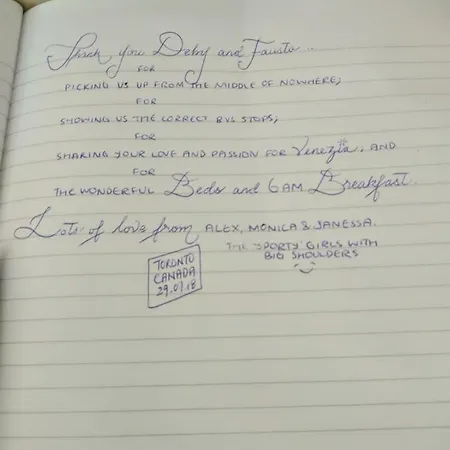 Thank you Deby and Fausto...
FOR
PICKING US UP FROM THE MIDDLE OF NOWHERE;
FOR
SHOWING US THE CORRECT BUS STOPS;
FOR
SHARING YOUR LOVE AND PASSION FOR Venezia; AND
FOR
THE WONDERFUL Beds and 6AM Breakfast.
Lots of love from ALEX, MONICA & JANESSA.
THE 'SPORTY' GIRLS WITH
BIG SHOULDERS
TORONTO
CANADA
29.07.18